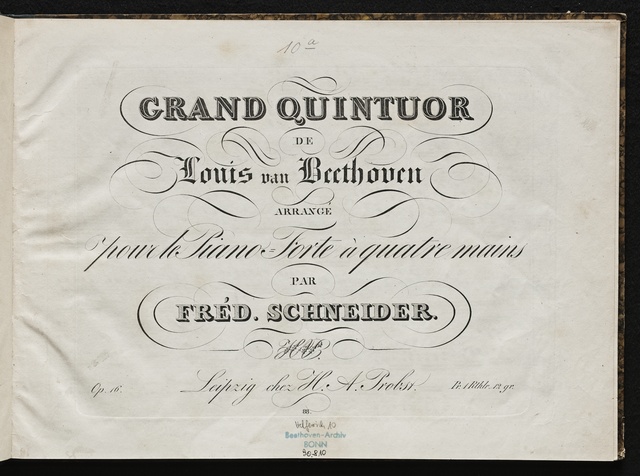 10a
GRAND QUINTUOR
DE
Louis van Beethoven
ARRANGÉ
pour le Piano=Forte à quatre mains
PAR
FRÉD. SCHNEIDER.
Op. 16.
Leipzig chez H. A. Probst.
Pr. 1 Rthlr. 12 gr.
88.
Beethoven-Archiv
BONN